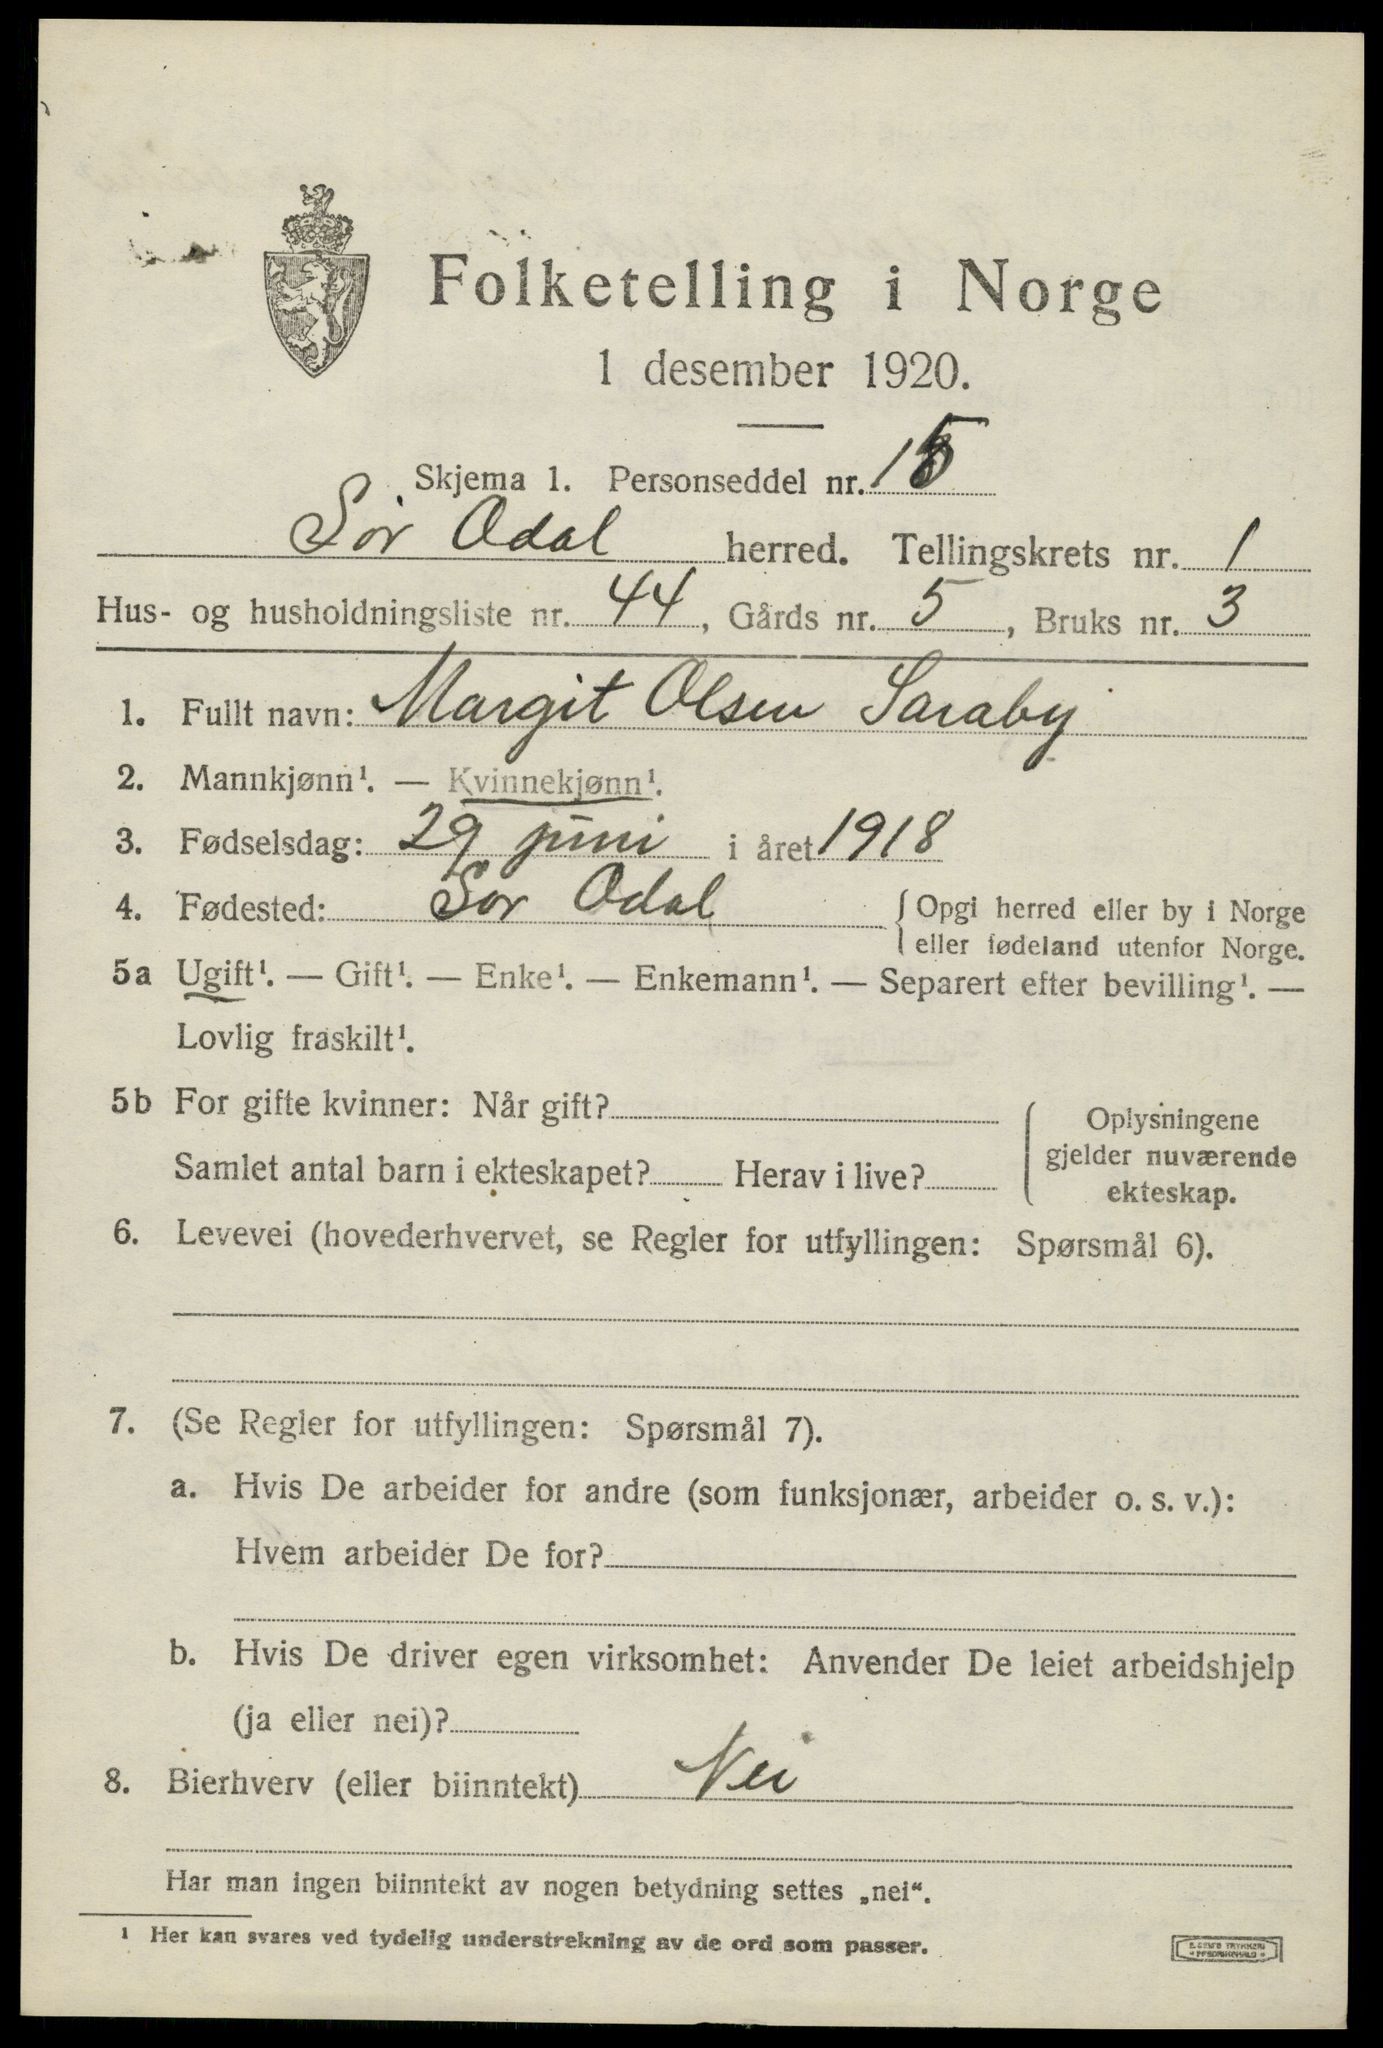 Folketelling i Norge
1 desember 1920.
Skjema 1. Personseddel nr. 15
Sør Odal herred. Tellingskrets nr. 1
Hus- og husholdningsliste nr. 44, Gårds nr. 5, Bruks nr. 3
1. Fullt navn: Margit Olsen Saraby
2. Mannkjønn¹. — Kvinnekjønn¹.
3. Fødselsdag: 29 juni i året 1918
4. Fødested: Sør Odal { Opgi herred eller by i Norge
eller fødeland utenfor Norge.
5a Ugift¹. — Gift¹. — Enke¹. — Enkemann¹. — Separert efter bevilling¹. —
Lovlig fraskilt¹.
5b For gifte kvinner: Når gift?
Samlet antal barn i ekteskapet? Herav i live?
Oplysningene
gjelder nuværende
ekteskap.
6. Levevei (hovederhvervet, se Regler for utfyllingen: Spørsmål 6).
7. (Se Regler for utfyllingen: Spørsmål 7).
a. Hvis De arbeider for andre (som funksjonær, arbeider o. s. v.):
Hvem arbeider De for?
b. Hvis De driver egen virksomhet: Anvender De leiet arbeidshjelp
(ja eller nei)?
8. Bierhverv (eller biinntekt) Nei
Har man ingen biinntekt av nogen betydning settes „nei“.
¹ Her kan svares ved tydelig understrekning av de ord som passer.